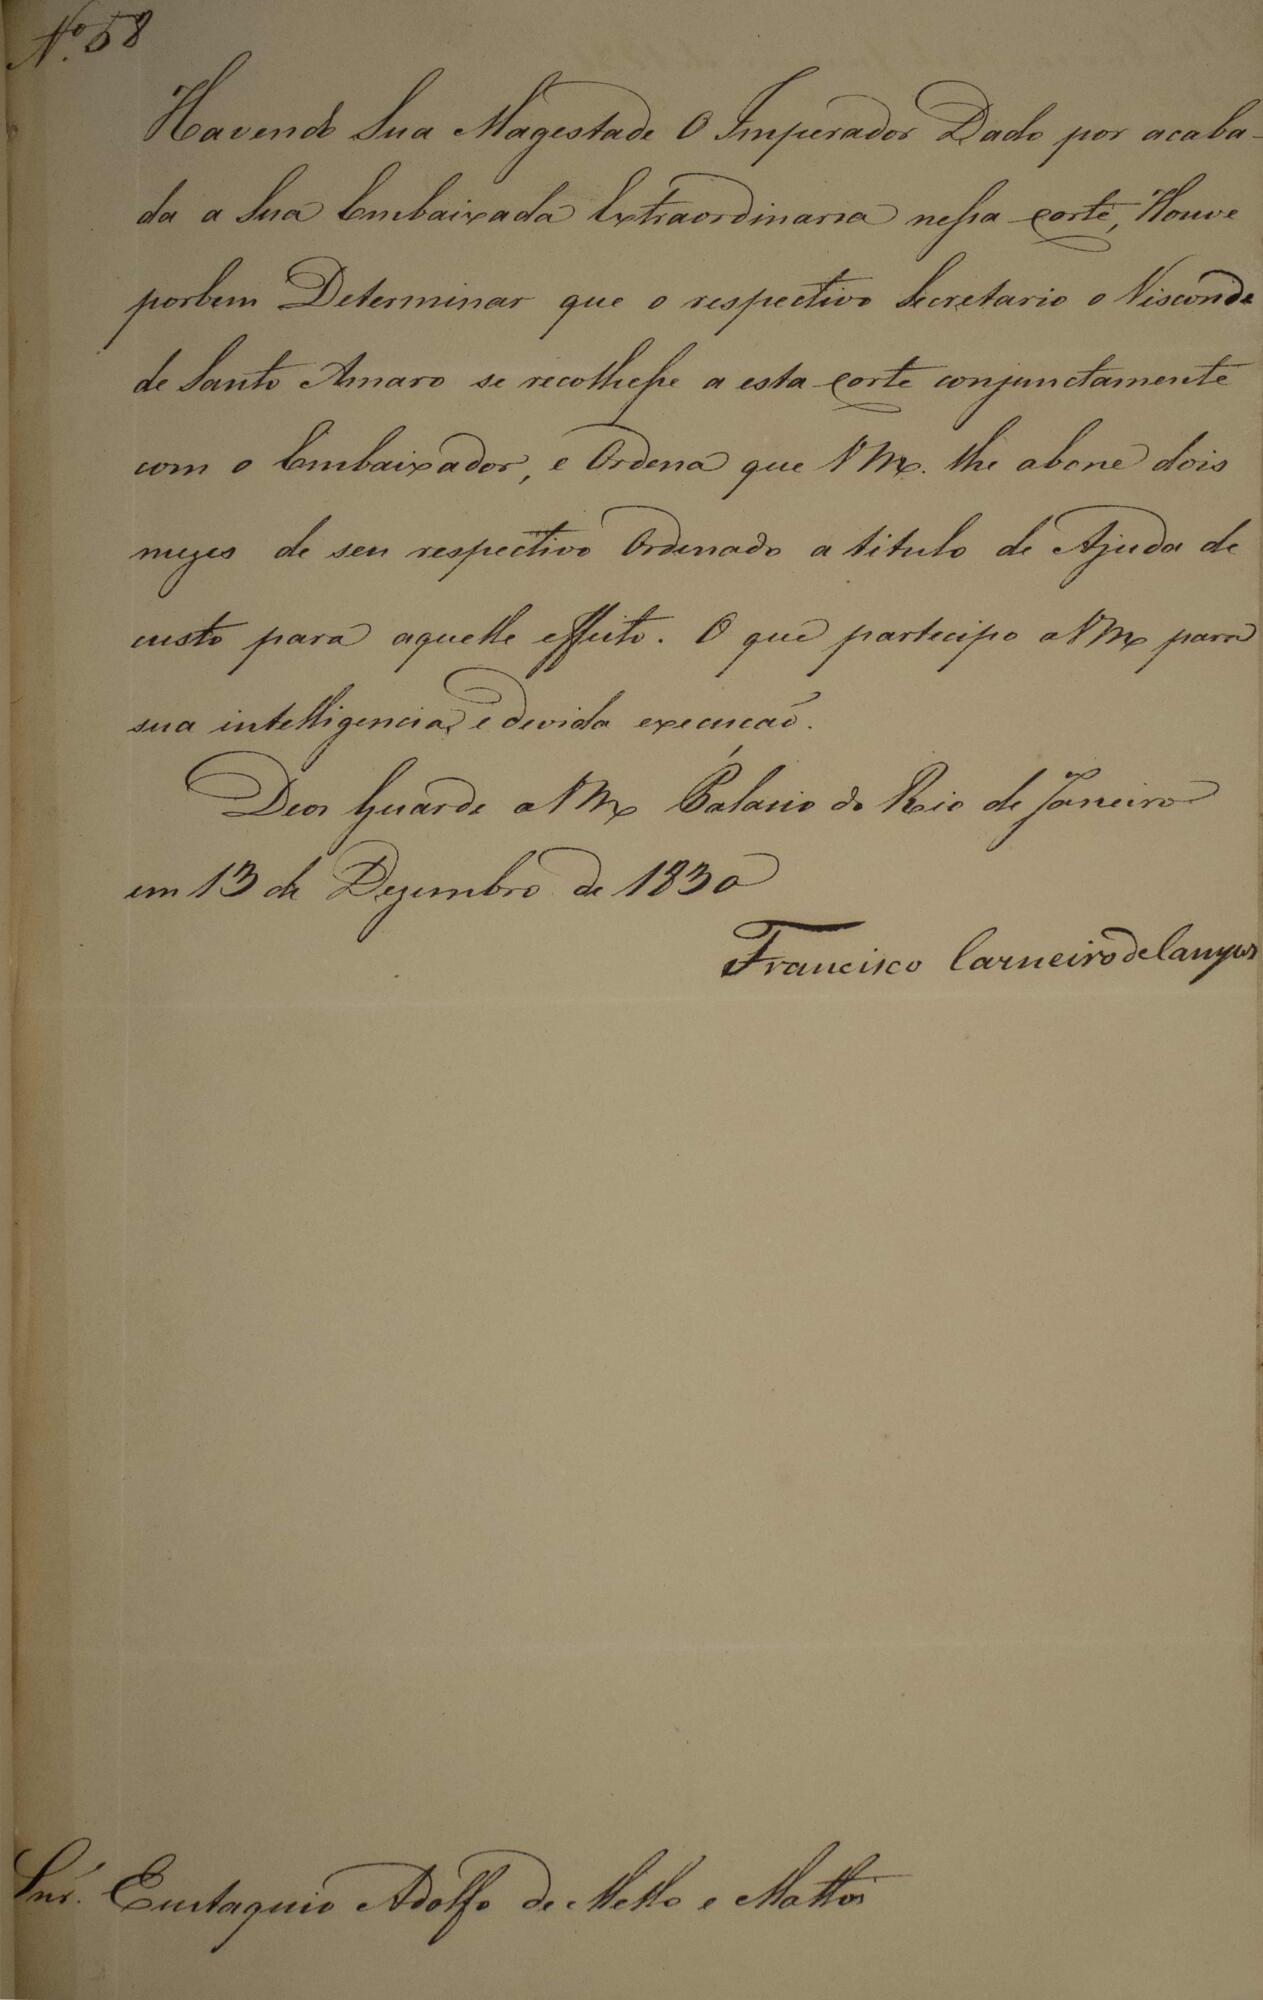 Nº 58
Havendo Sua Magestade O Imperador Dado por acaba-
da a Sua Embaixada Extraordinaria nessa Corte, Houve
porbem Determinar que o respectivo Secretario o Visconde
de Santo Amaro se recolhesse a esta Corte conjunctamente
com o Embaixador, e Ordena que VMce. lhe abone dois
mezes de seu respectivo Ordenado a titulo de Ajuda de
custo para aquelle effeito. O que participo a VMce para
sua intelligencia, e devida execução.
Deos Guarde a VMce Palacio do Rio de Janeiro
em 13 de Dezembro de 1830
Francisco Carneiro de Campos
Snr. Eustaquio Adolfo de Mello e Mattos